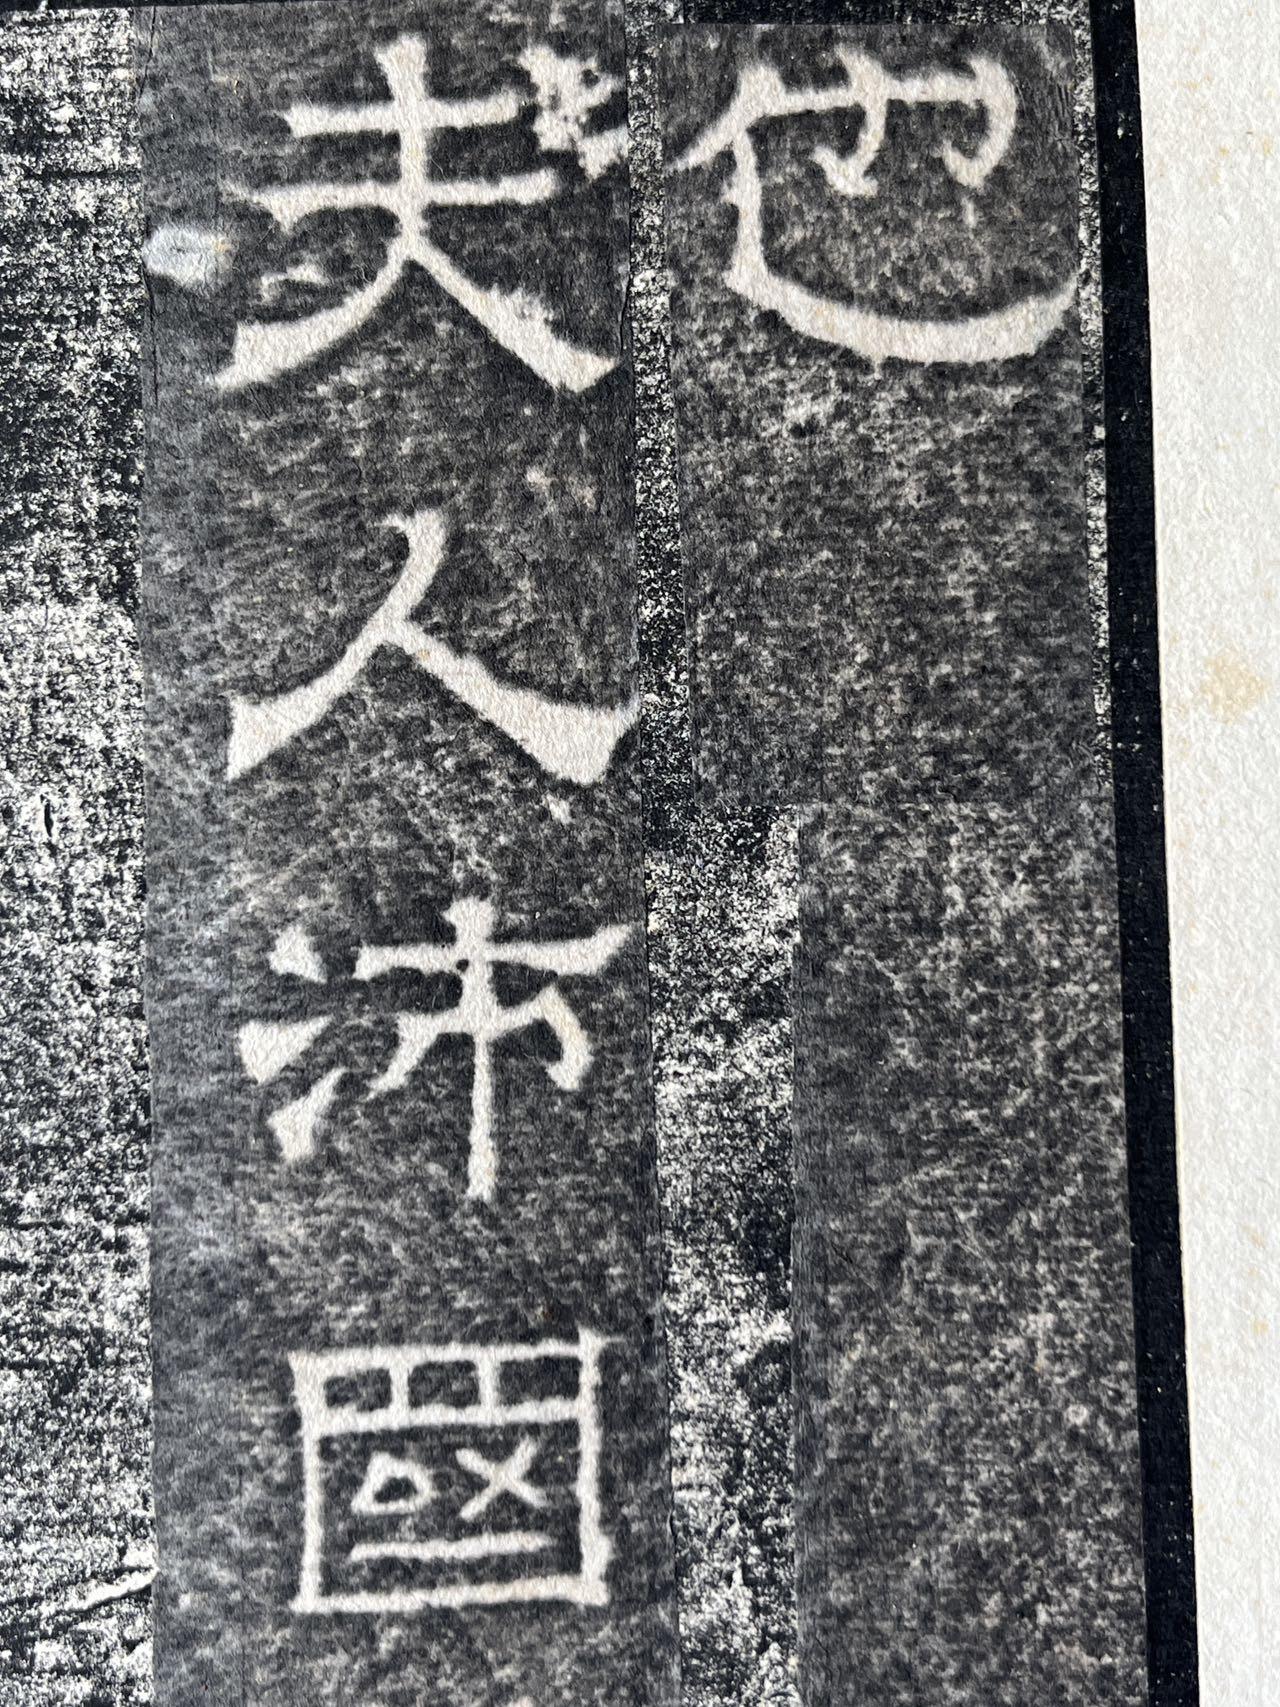 也
夫人沛國